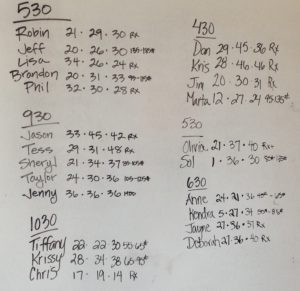 530
Robin 21 · 29 · 30 Rx
Jeff 20 · 26 · 30
Lisa 34 · 26 · 24 Rx
Brandon 20 · 31 · 33
Phil 32 · 30 · 28 Rx
930
Jason 33 · 45 · 42 Rx
Tess 29 · 31 · 48 Rx
Sheryl 21 · 34 · 37
Taylor 24 · 30 · 36
Jenny 36 · 36 · 36
1030
Tiffany 22 · 22 · 30
Krissy 28 · 34 · 38
Chris 17 · 19 · 14 Rx
430
Dan 29 · 45 · 36 Rx
Kris 28 · 46 · 46 Rx
Jim 20 · 30 · 31 Rx
Marta 12 · 27 · 24
530
Olivia 21 · 37 · 40 Rx
Sal 1 · 36 · 30
630
Anne 24 · 21 · 36
Kendra 5 · 27 · 34
Jayne 27 · 36 · 37 Rx
Deborah 27 · 36 · 40 Rx